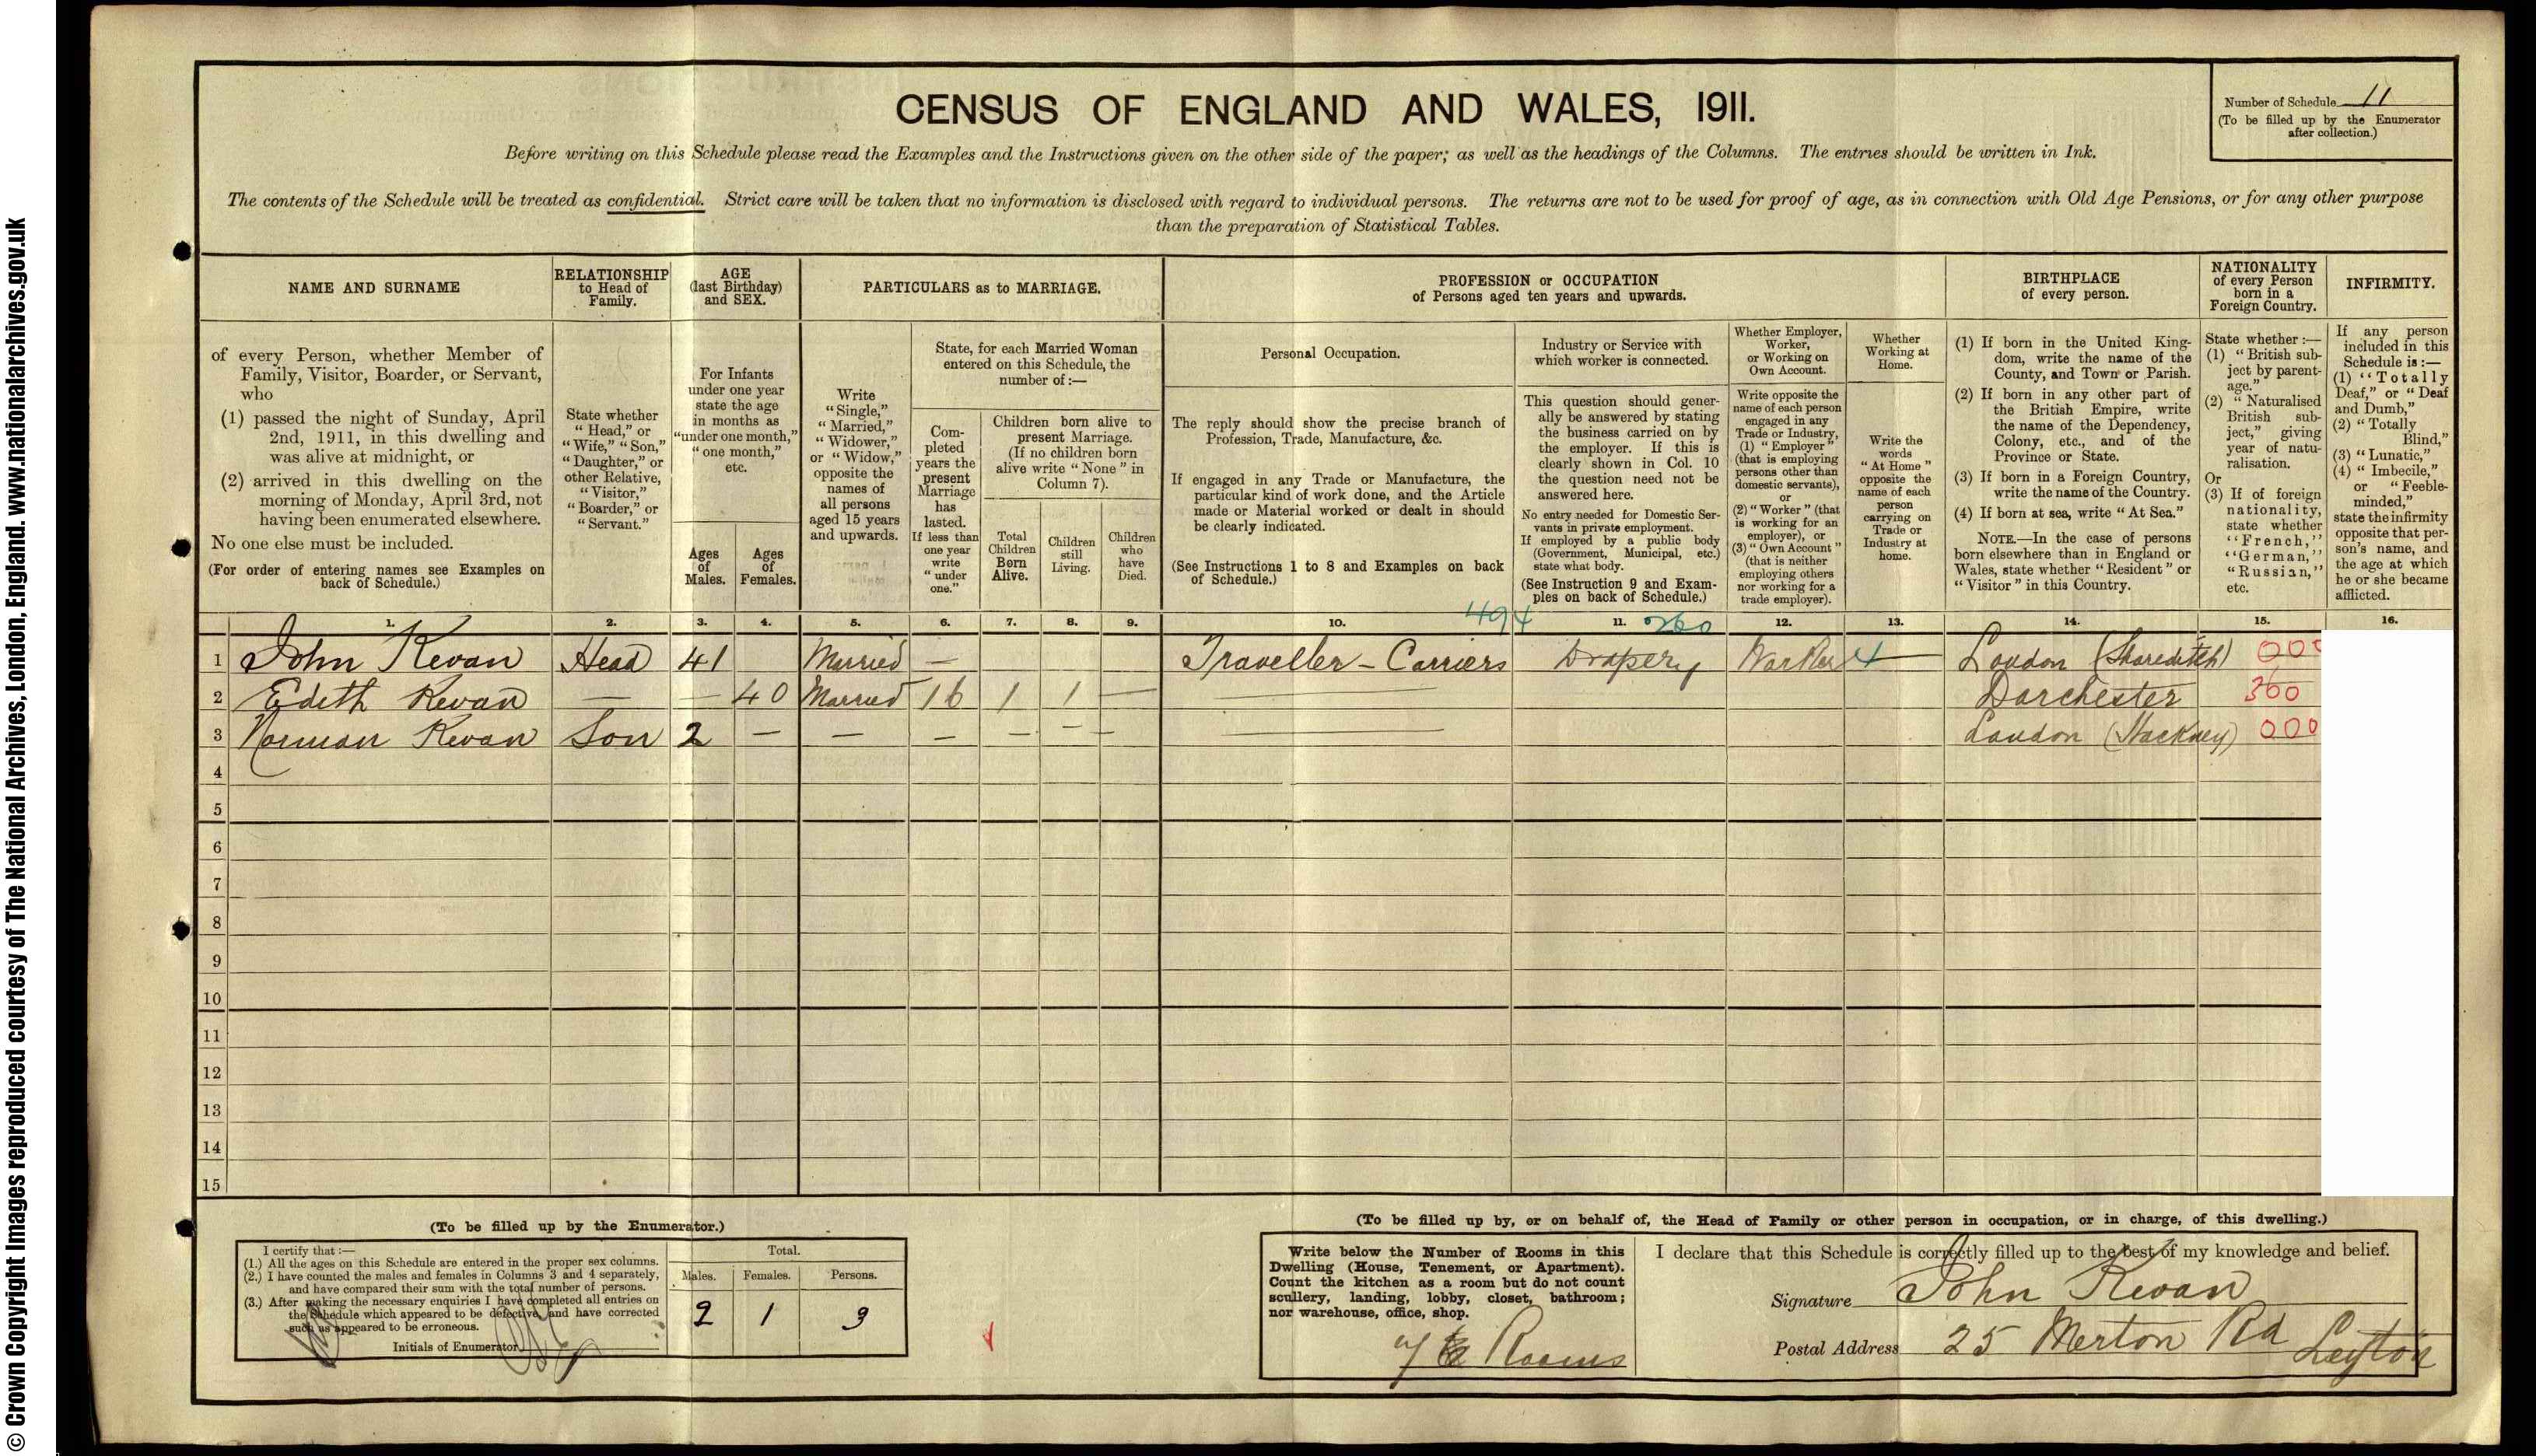 © Crown Copyright Images reproduced courtesy of The National Archives, London, England. www.nationalarchives.gov.uk
CENSUS OF ENGLAND AND WALES, 1911.
Number of Schedule 11
(To be filled up by the Enumerator
after collection.)
Before writing on this Schedule please read the Examples and the Instructions given on the other side of the paper; as well as the headings of the Columns. The entries should be written in Ink.
The contents of the Schedule will be treated as confidential. Strict care will be taken that no information is disclosed with regard to individual persons. The returns are not to be used for proof of age, as in connection with Old Age Pensions, or for any other purpose
than the preparation of Statistical Tables.
NAME AND SURNAME
of every Person, whether Member of
Family, Visitor, Boarder, or Servant,
who
(1) passed the night of Sunday, April
2nd, 1911, in this dwelling and
was alive at midnight, or
(2) arrived in this dwelling on the
morning of Monday, April 3rd, not
having been enumerated elsewhere.
No one else must be included.
(For order of entering names see Examples on
back of Schedule.)
RELATIONSHIP
to Head of
Family.
State whether
"Head," or
"Wife," "Son,"
"Daughter," or
other Relative,
"Visitor,"
"Boarder," or
"Servant."
AGE
(last Birthday)
and SEX.
For Infants
under one year
state the age
in months as
"under one month,"
"one month,"
etc.
Ages
of
Males.
Ages
of
Females.
PARTICULARS as to MARRIAGE.
Write
"Single,"
"Married,"
"Widower,"
or "Widow,"
opposite the
names of
all persons
aged 15 years
and upwards.
State, for each Married Woman
entered on this Schedule, the
number of:—
Com-
pleted
years the
present
Marriage
has
lasted.
If less than
one year
write
"under
one."
Children born alive to
present Marriage.
(If no children born
alive write "None" in
Column 7).
Total
Children
Born
Alive.
Children
still
Living.
Children
who
have
Died.
PROFESSION or OCCUPATION
of Persons aged ten years and upwards.
Personal Occupation.
The reply should show the precise branch of
Profession, Trade, Manufacture, &c.
If engaged in any Trade or Manufacture, the
particular kind of work done, and the Article
made or Material worked or dealt in should
be clearly indicated.
(See Instructions 1 to 8 and Examples on back
of Schedule.)
Industry or Service with
which worker is connected.
This question should gener-
ally be answered by stating
the business carried on by
the employer. If this is
clearly shown in Col. 10
the question need not be
answered here.
No entry needed for Domestic Ser-
vants in private employment.
If employed by a public body
(Government, Municipal, etc.)
state what body.
(See Instruction 9 and Exam-
ples on back of Schedule.)
Whether Employer,
Worker,
or Working on
Own Account.
Write opposite the
name of each person
engaged in any
Trade or Industry,
(1) "Employer"
(that is employing
persons other than
domestic servants),
or
(2) "Worker" (that
is working for an
employer), or
(3) "Own Account"
(that is neither
employing others
nor working for a
trade employer).
Whether
Working at
Home.
Write the
words
"At Home"
opposite the
name of each
person
carrying on
Trade or
Industry at
home.
BIRTHPLACE
of every person.
(1) If born in the United King-
dom, write the name of the
County, and Town or Parish.
(2) If born in any other part of
the British Empire, write
the name of the Dependency,
Colony, etc., and of the
Province or State.
(3) If born in a Foreign Country,
write the name of the Country.
(4) If born at sea, write "At Sea."
NOTE.—In the case of persons
born elsewhere than in England or
Wales, state whether "Resident" or
"Visitor" in this Country.
NATIONALITY
of every Person
born in a
Foreign Country.
State whether:—
(1) "British sub-
ject by parent-
age."
(2) "Naturalised
British sub-
ject," giving
year of natu-
ralisation.
Or
(3) If of foreign
nationality,
state whether
"French,"
"German,"
"Russian,"
etc.
INFIRMITY.
If any person
included in this
Schedule is:—
(1) "Totally
Deaf," or "Deaf
and Dumb,"
(2) "Totally
Blind,"
(3) "Lunatic,"
(4) "Imbecile,"
or "Feeble-
minded,"
state the infirmity
opposite that per-
son's name, and
the age at which
he or she became
afflicted.
1. 2. 3. 4. 5. 6. 7. 8. 9. 10. 494 11. 260 12. 13. 14. 15. 16.
1 John Kevan Head 41 Married — Traveller - Carriers Drapery Worker 4 — London (Shoreditch) 000
2 Edith Kevan — — 40 Married 16 1 1 — — Dorchester 360
3 Norman Kevan Son 2 — — — — — — — London (Hackney) 000
4
5
6
7
8
9
10
11
12
13
14
15
(To be filled up by the Enumerator.)
I certify that:—
(1.) All the ages on this Schedule are entered in the proper sex columns.
(2.) I have counted the males and females in Columns 3 and 4 separately,
and have compared their sum with the total number of persons.
(3.) After making the necessary enquiries I have completed all entries on
the Schedule which appeared to be defective, and have corrected
such as appeared to be erroneous.
Initials of Enumerator
Total.
Males. Females. Persons.
2 1 3
(To be filled up by, or on behalf of, the Head of Family or other person in occupation, or in charge, of this dwelling.)
Write below the Number of Rooms in this
Dwelling (House, Tenement, or Apartment).
Count the kitchen as a room but do not count
scullery, landing, lobby, closet, bathroom;
nor warehouse, office, shop.
Rooms
I declare that this Schedule is correctly filled up to the best of my knowledge and belief.
Signature John Kevan
Postal Address 25 Merton Rd Leyton